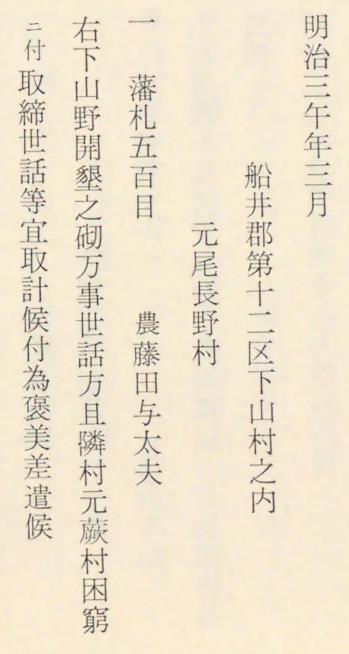 明治三午年三月
船井郡第十二区下山村之内
元尾長野村
一　藩札五百目　　農藤田与太夫
右下山野開墾之砌万事世話方且隣村元蕨村困窮
ニ付取締世話等宜取計候付為褒美差遣候